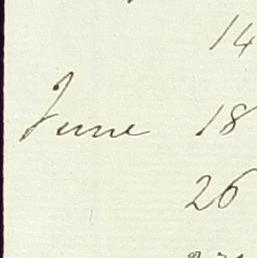 14
June 18
26